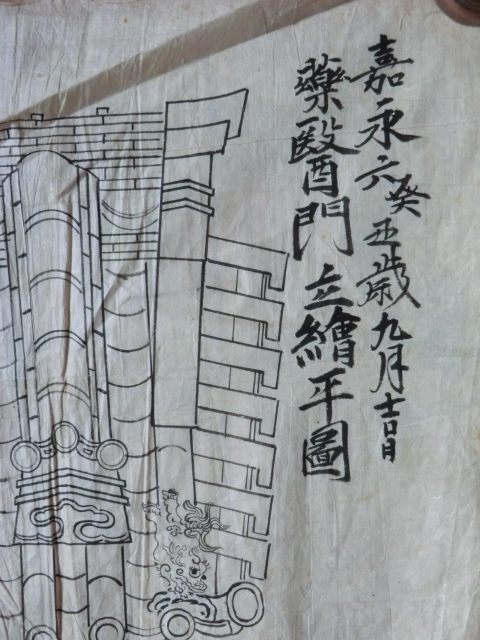 嘉永六癸丑歳九月吉日
藥醫門立繪平圖